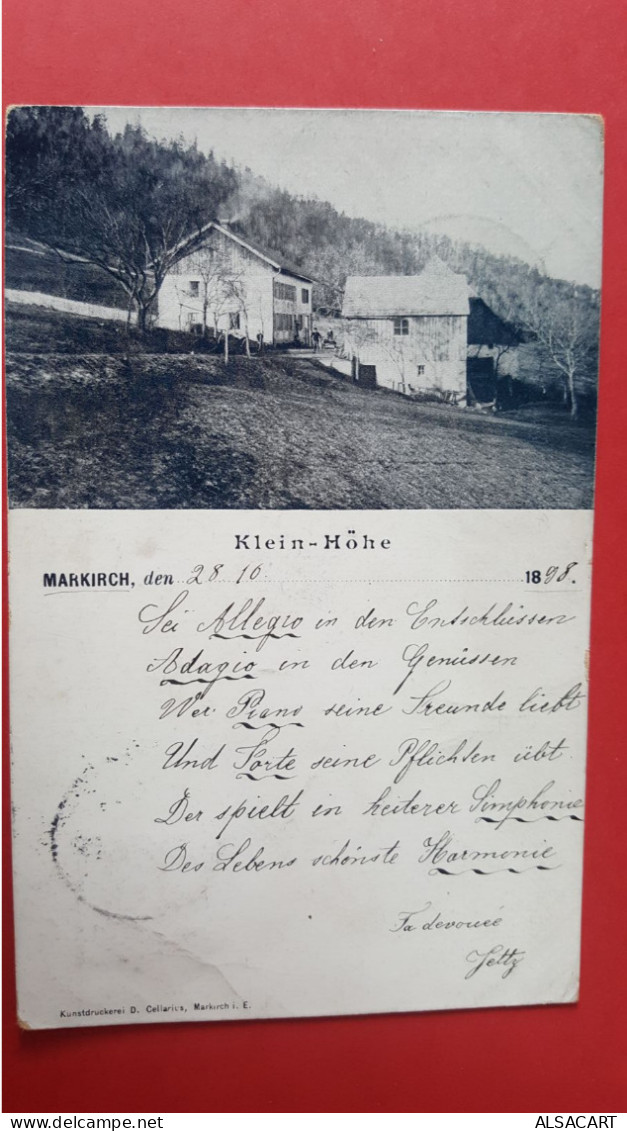 Klein-Höhe
MARKIRCH, den 28.10 1898.
Sei Allegro in den Entschlüssen
Adagio in den Genüssen
Wer Piano seine Freunde liebt
Und Forte seine Pflichten übt
Der spielt in heiterer Simphonie
Des Lebens schönste Harmonie
Ta devouée
Kunstdruckerei D. Cellarius, Markirch i. E.
ALSACART